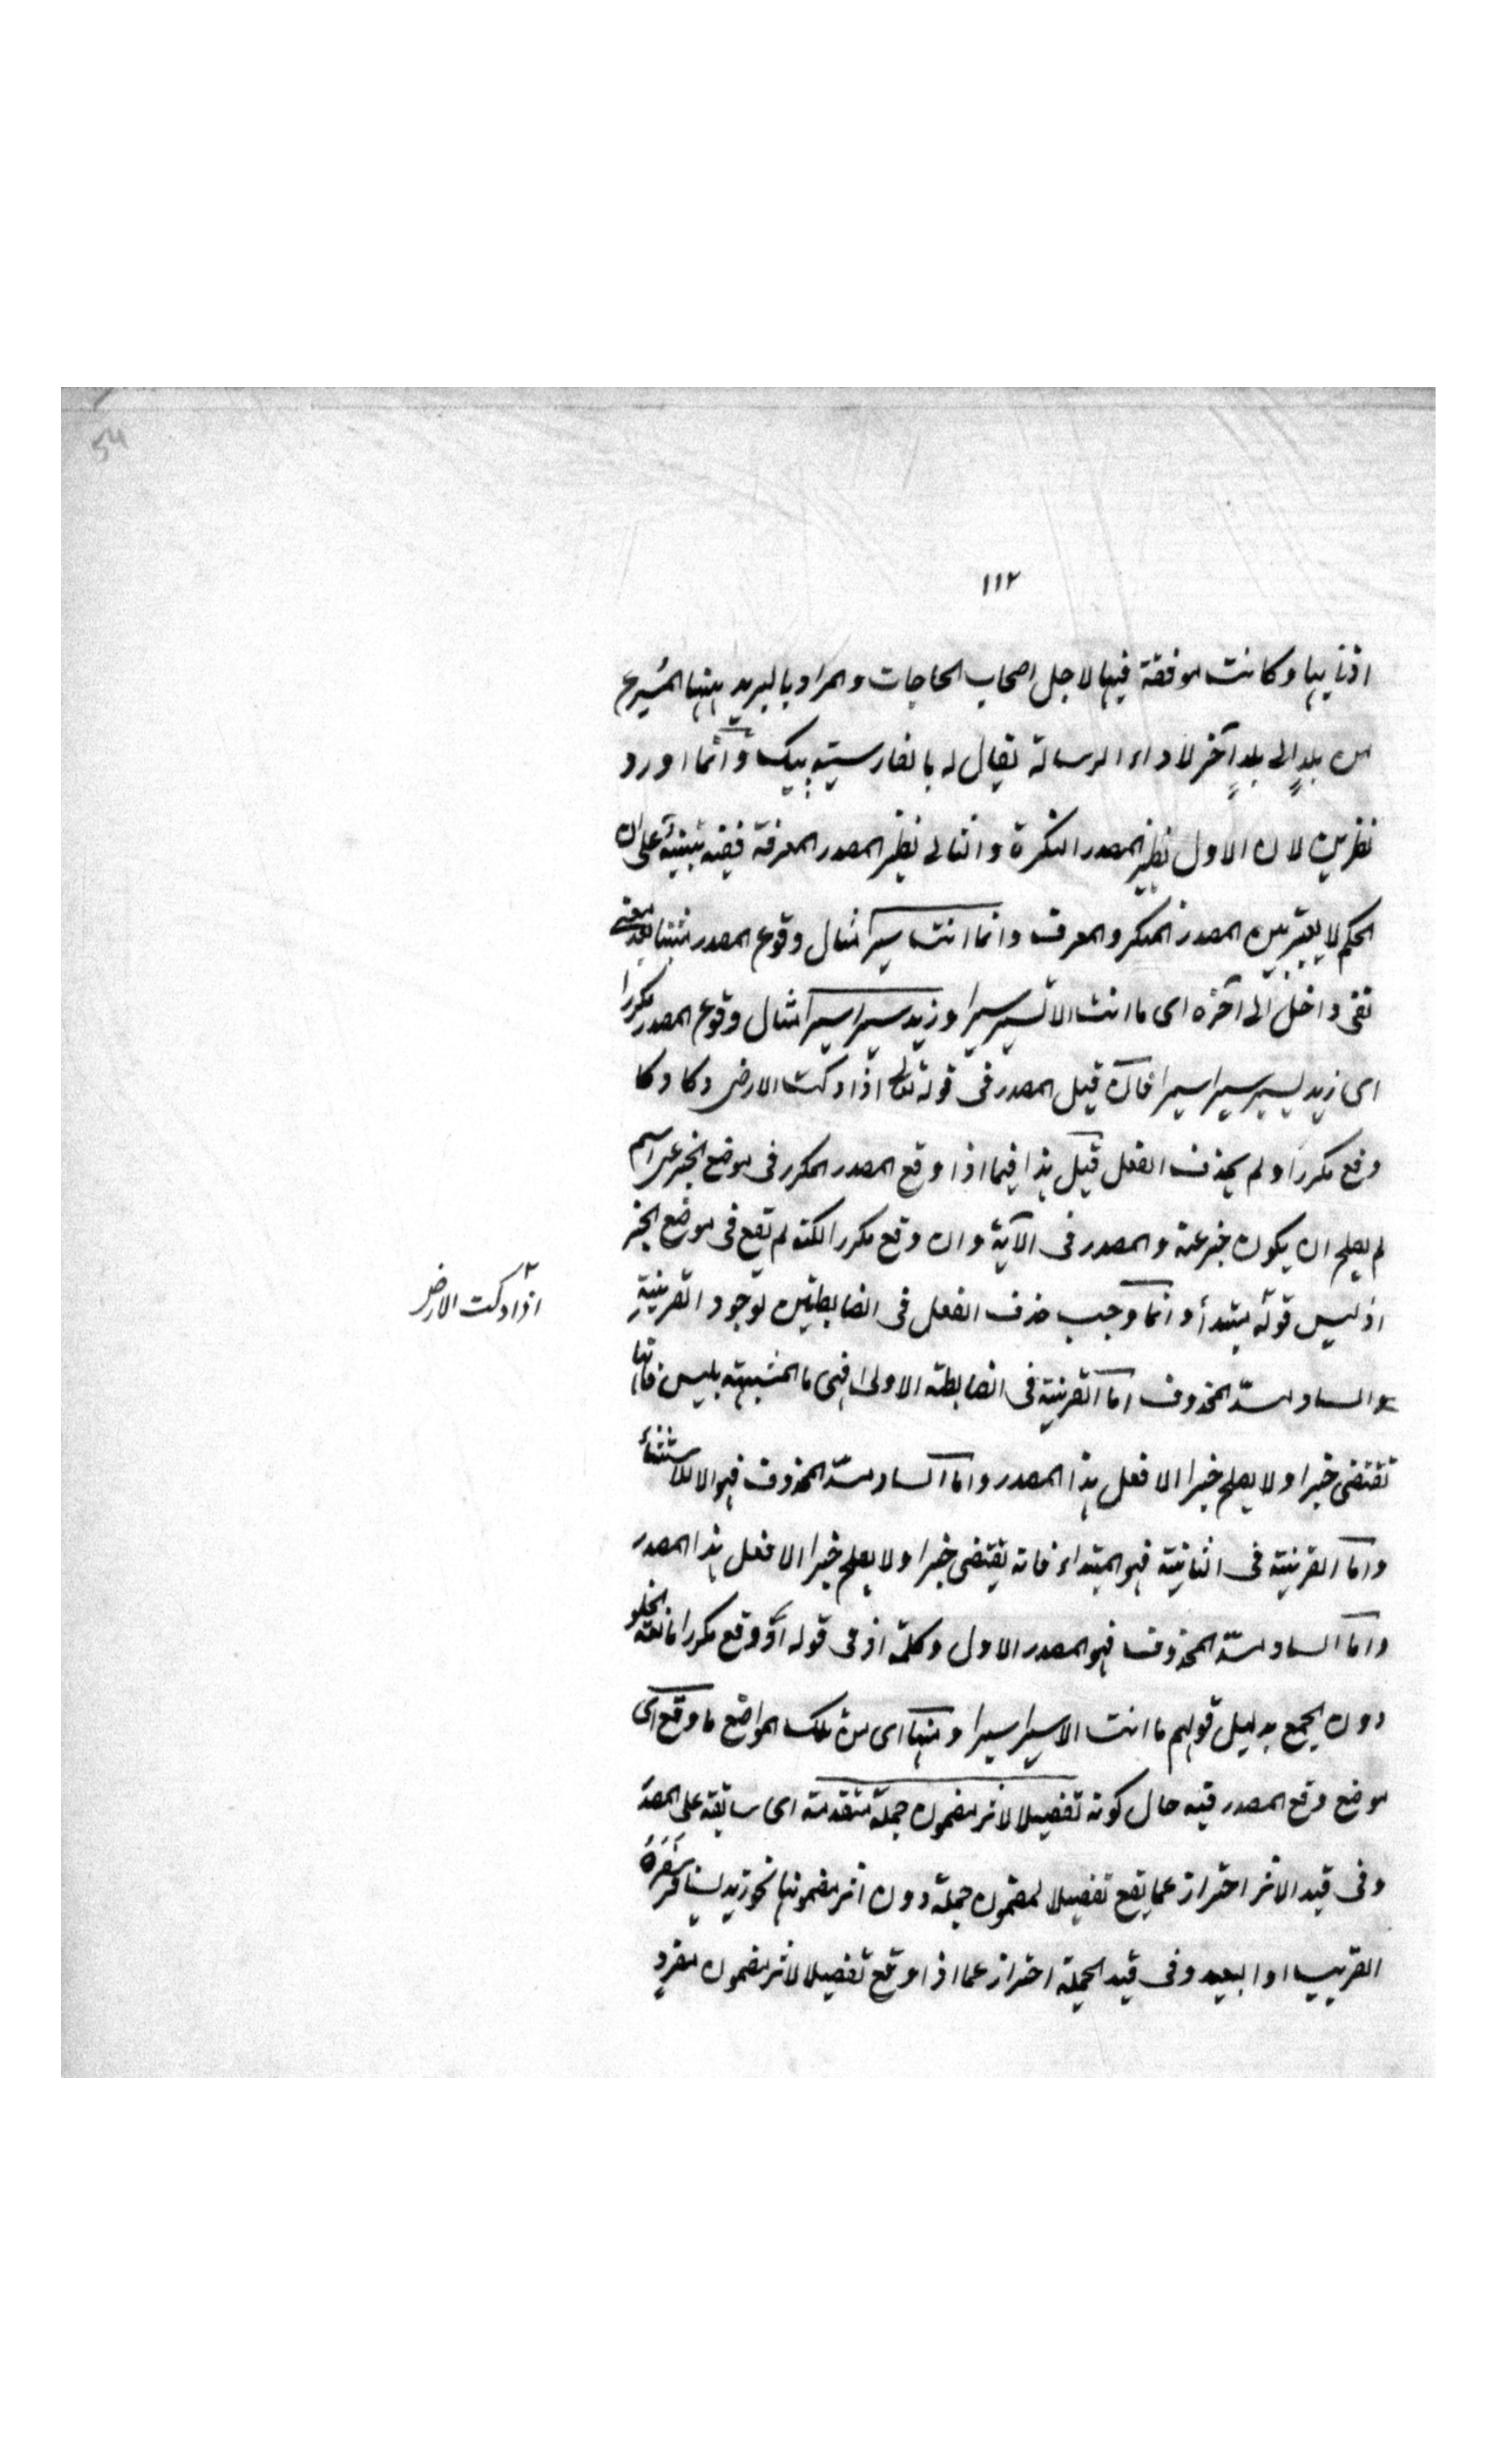 ١١٢
اذنابها وكانت موفقة فيها لاجل اصحاب الحاجات والمراد بالبريد ههنا المسرع
من بلدٍ الى بلدٍ آخر لاداء الرسالة يقال له بالفارسية پيك وانما اورد
نظيرين لان الاول نظير المصدر النكرة والثانى نظير المصدر المعرفة ففيه تنبيه على ان
الحكم لا يتغير بين المصدر المنكر والمعرف وانما انت سيرا مثال وقوع المصدر مثبتا بعد معنى
نفى داخل الى آخره اى ما انت الا تسير سيرا وزيد سيرا سيرا مثال وقوع المصدر مكررا
اى زيد يسير سيرا سيرا فان قيل المصدر فى قوله تعالى اذا دكت الارض دكا دكا
وقع مكررا ولم يحذف الفعل قيل هذا فيما اذا وقع المصدر المكرر فى موضع الخبر عن اسم
لم يصلح ان يكون خبر عنه والمصدر فى الآية وان وقع مكررا لكنه لم تقع فى موضع الخبر
اذ ليس قوله مبتدأ وانما وجب حذف الفعل فى الضابطتين لوجود القرينة
والساد مسدّ المحذوف اما القرينة فى الضابطة الاولى فهى ما المشبهة بليس فانها
تقتضى خبرا ولا يصلح خبرا الا فعل هذا المصدر واما الساد مسدّ المحذوف فهو الا للاستثناء
واما القرينة فى الثانية فهو المبتداء فانه يقتضى خبرا ولا يصلح خبرا الا فعل هذا المصدر
واما الساد مسدّ المحذوف فهو المصدر الاول وكلمة او فى قوله او وقع مكررا مانعة الخلو
دون الجمع بدليل قولهم ما انت الا سيرا سيرا ومنها اى من تلك المواضع ما وقع اى
موضع وقع المصدر فيه حال كونه تفصيلا لاثر مضمون جملة متقدمة اى سابقة على المصدر
وفى قيد الاثر احتراز عما يقع تفصيلا لمضمون جملة دون اثر مضمونها نحو زيد يسافر سفره
القريب او البعيد وفى قيد الجملة احتراز عما اذا وقع تفصيلا لاثر مضمون مفرد
اذا دكت الارض